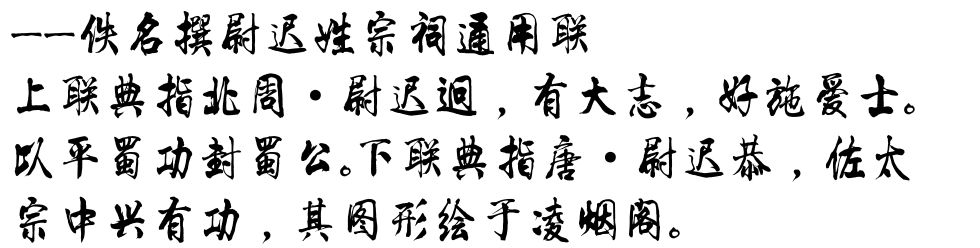 ——佚名撰尉迟姓宗祠通用联
上联典指北周·尉迟迥，有大志，好施爱士。
以平蜀功封蜀公。下联典指唐·尉迟恭，佐太
宗中兴有功，其图形绘于凌烟阁。